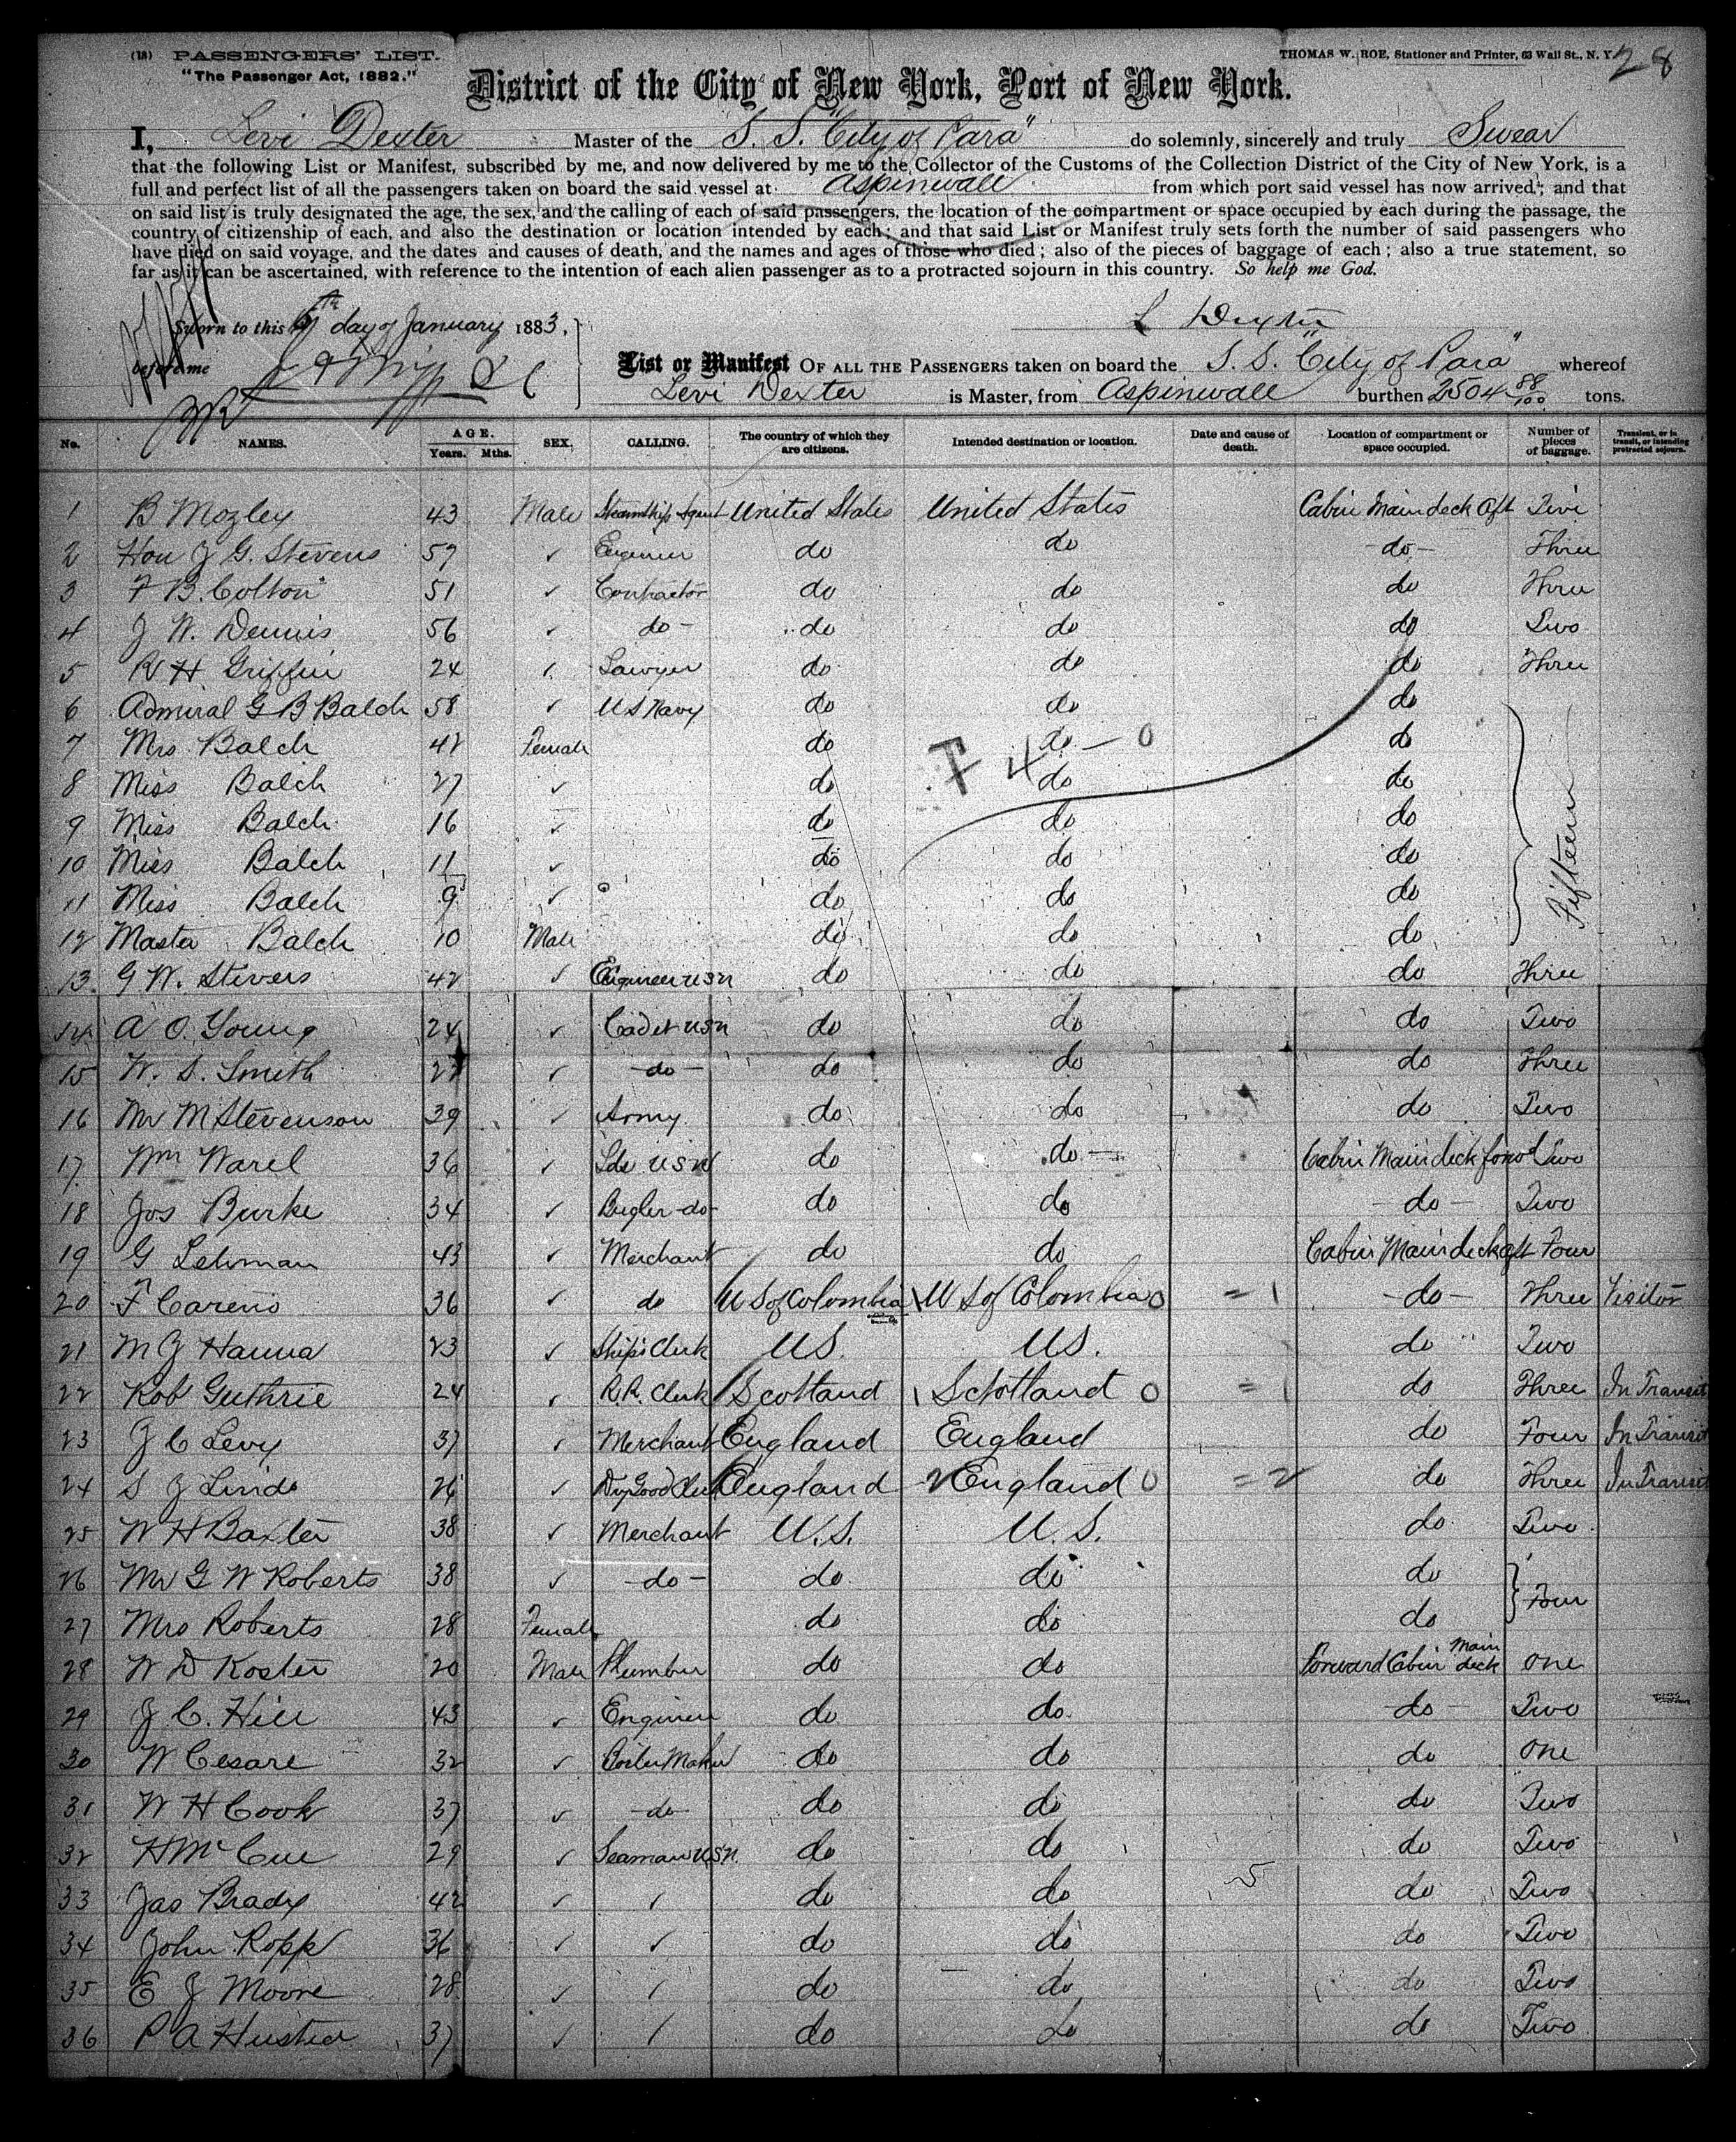 (18) PASSENGERS' LIST.
"The Passenger Act, 1882."
THOMAS W. ROE, Stationer and Printer, 63 Wall St., N. Y.
28
District of the City of New York, Port of New York.
I, Levi Dexter Master of the S. S. "City of Para" do solemnly, sincerely and truly Swear
that the following List or Manifest, subscribed by me, and now delivered by me to the Collector of the Customs of the Collection District of the City of New York, is a
full and perfect list of all the passengers taken on board the said vessel at Aspinwall from which port said vessel has now arrived; and that
on said list is truly designated the age, the sex, and the calling of each of said passengers, the location of the compartment or space occupied by each during the passage, the
country of citizenship of each, and also the destination or location intended by each; and that said List or Manifest truly sets forth the number of said passengers who
have died on said voyage, and the dates and causes of death, and the names and ages of those who died; also of the pieces of baggage of each; also a true statement, so
far as it can be ascertained, with reference to the intention of each alien passenger as to a protracted sojourn in this country. So help me God.
Sworn to this 6th day of January 1883,
L Dexter
before me
List or Manifest OF ALL THE PASSENGERS taken on board the S. S. "City of Para" whereof
Levi Dexter is Master, from Aspinwall burthen 2504 88/100 tons.
No. NAMES. AGE. Years. Mths. SEX. CALLING. The country of which they are citizens. Intended destination or location. Date and cause of death. Location of compartment or space occupied. Number of pieces of baggage. Transient, or in transit, or intending protracted sojourn.
1 B Mozley 43 Male Steamship Agent United States United States Cabin Main deck aft Five
2 Hon J G. Stevens 59 ✓ Engineer do do -do- Three
3 F B. Colton 51 ✓ Contractor do do do Three
4 J W. Dennis 56 ✓ do - do do do Two
5 R H Griffin 24 ✓ Lawyer do do do Three
6 Admiral G B Balch 58 ✓ U S Navy do do do
7 Mrs Balch 42 Female do do do
F 4 - 0
8 Miss Balch 27 ✓ do do do
9 Miss Balch 16 ✓ do do do
10 Miss Balch 11 ✓ do do do
Fifteen
11 Miss Balch 9 ✓ do do do
12 Master Balch 10 Male do do do
13. G W. Stivers 42 ✓ Engineer USN do do do Three
14 A O. Young 24 ✓ Cadet USN do do do Two
15 W. S. Smith ✓ -do- do do do Three
16 Mr M Stevenson 39 ✓ Army do do do Two
17 Wm Warel 36 ✓ USN do do Cabin Main deck forwd Two
18 Jos Burke 34 ✓ Bugler -do- do do -do- Two
19 G Lehman 43 ✓ Merchant do do Cabin Main deck aft Four
20 F Careño 36 ✓ do U S of Colombia U S of Colombia 0 = 1 -do- Three Visitor
21 M J Hanna 23 ✓ Ship's Clerk US. US. do Two
22 Rob Guthrie 24 ✓ R.R. Clerk Scotland Scotland 0 = 1 do Three In Transit
23 J C Levy 37 ✓ Merchant England England do Four In Transit
24 S J Lindo 26 ✓ Dry Good Clerk England 2 England 0 = 2 do Three In Transit
25 W H Baxter 38 ✓ Merchant U.S. U.S. do Two
26 Mr G W Roberts 38 ✓ -do- do do do
Four
27 Mrs Roberts 28 Female do do do
28 W D Koster 20 Male Plumber do do Forward Cabin Main deck One
29 J C. Hill 43 ✓ Engineer do do -do- Two
30 W Cesare 32 ✓ Boiler Maker do do do One
31 W H Cook 37 ✓ -do- do do do Two
32 H McCue 29 ✓ Seaman USN. do do do Two
33 Jas Brady 42 ✓ ✓ do do do Two
34 John Ropp 36 ✓ ✓ do do do Two
35 E J Moore 28 ✓ ✓ do do do Two
36 P A Husted 37 ✓ ✓ do do do Two